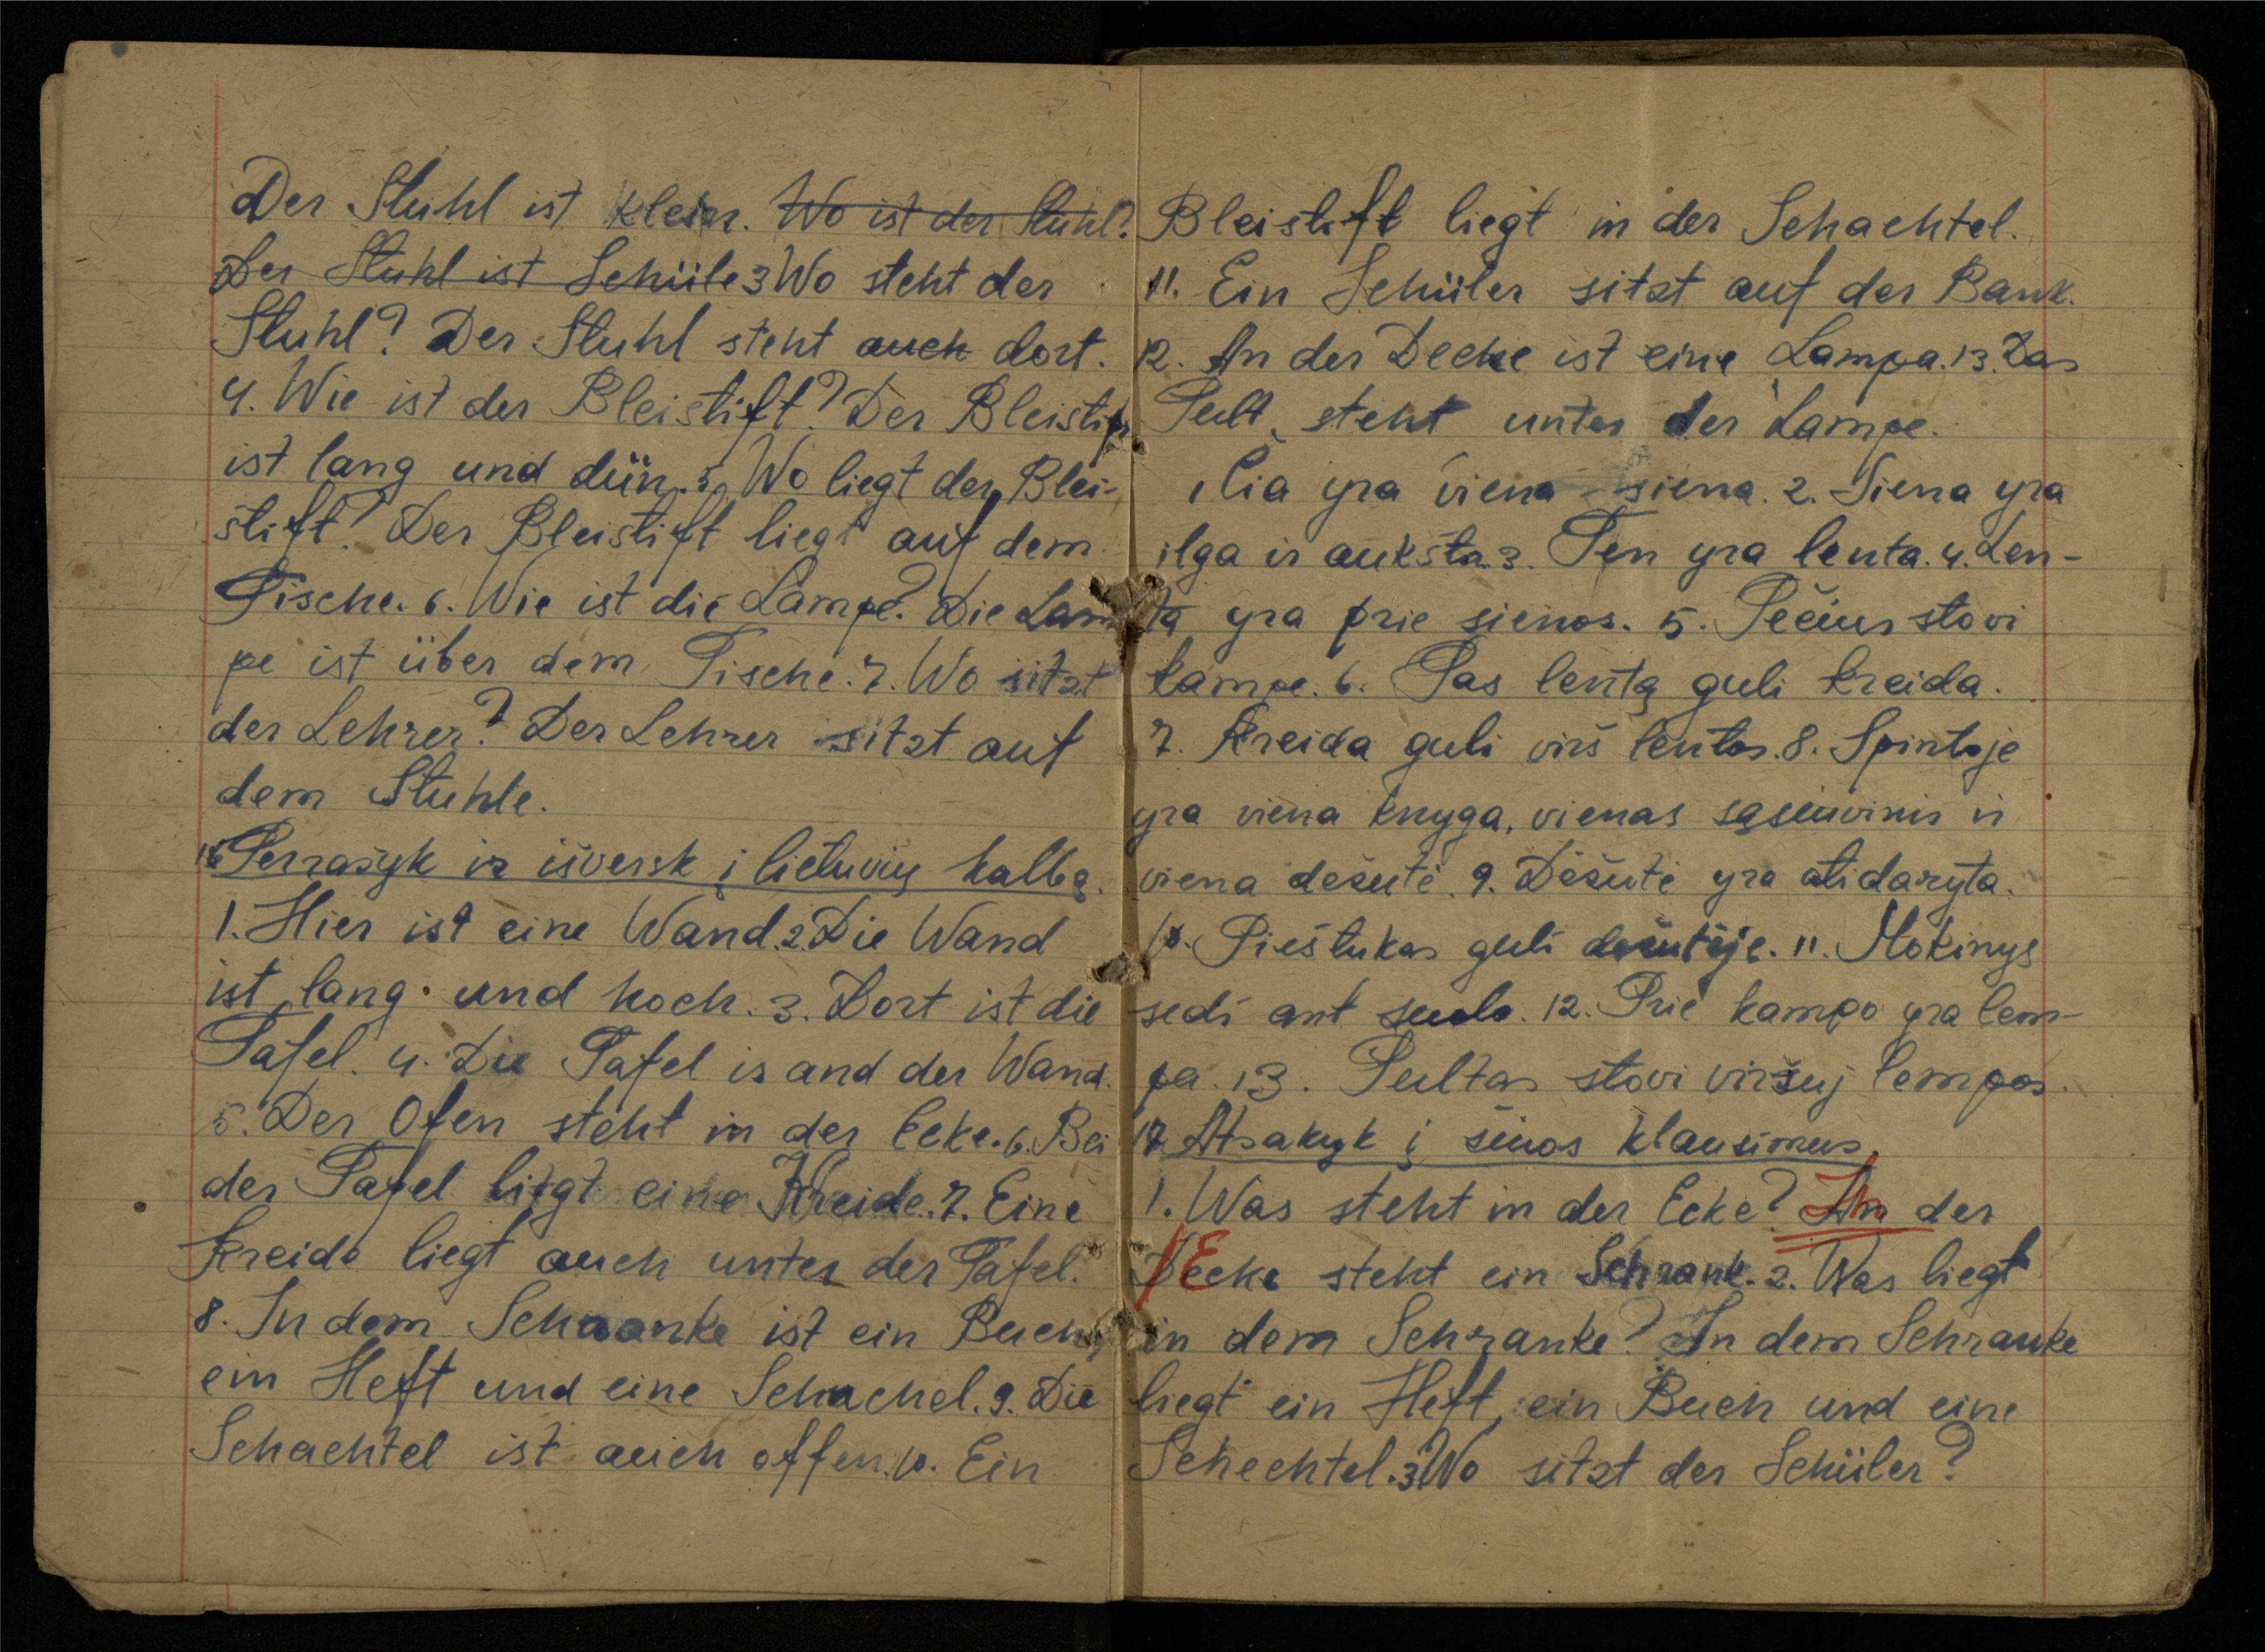 Der Stuhl ist klein. Wo ist der Stuhl?
Der Stuhl ist Schüle 3 Wo steht der
Stuhl? Der Stuhl steht auch dort.
4. Wie ist der Bleistift? Der Bleistift
ist lang und dün. 5. Wo liegt der Blei-
stift? Der Bleistift liegt auf dem
Tische. 6. Wie ist die Lampe? Die Lam
pe ist über dem Tische. 7. Wo sitzt
der Lehrer? Der Lehrer sitzt auf
dem Stuhle.
16 Perrašyk ir išversk į lietuvių kalbą.
1. Hier ist eine Wand. 2. Die Wand
ist lang und hoch. 3. Dort ist die
Tafel. 4. Die Tafel is and der Wand.
5. Der Ofen steht in der Ecke. 6. Bei
der Tafel liegt eine Kreide. 7. Eine
Kreide liegt auch unter der Tafel.
8. In dem Schranke ist ein Buch,
ein Heft und eine Schachel. 9. Die
Schachtel ist auch offen. 10. Ein
Bleistift liegt in der Schachtel.
11. Ein Schüler sitzt auf der Bank.
12. An der Decke ist eine Lampa. 13. Das
Pult steht unter der Lampe.
1 Čia yra viena siena. 2. Siena yra
ilga ir aukšta. 3. Ten yra lenta. 4. Len-
ta yra prie sienos. 5. Pečius stovi
kampe. 6. Pas lentą guli kreida.
7. Kreida guli virš lentos. 8. Spintoje
yra viena knyga, vienas sąsiuvinis ir
viena dėšutė. 9. Dėšutė yra atidaryta.
10. Pieštukas guli dėšutėje. 11. Mokinys
sedi ant suolo. 12. Prie kampo yra lem-
pa. 13. Pultas stovi viršuj lempos.
17 Atsakyk į šiuos klausimus.
1. Was steht in der Ecke? In der
Ecke steht ein Schrank. 2. Was liegt
in dem Schranke? In dem Schranke
liegt ein Heft, ein Buch und eine
Schechtel. 3 Wo sitzt der Schüler?